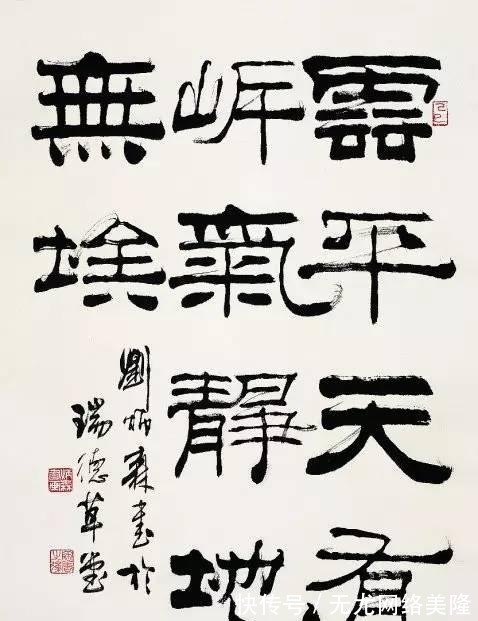 雲平天有
岓氣靜地
無埃
劉炳森書於
瑞德草堂
快传号 / 无尤网络美隆